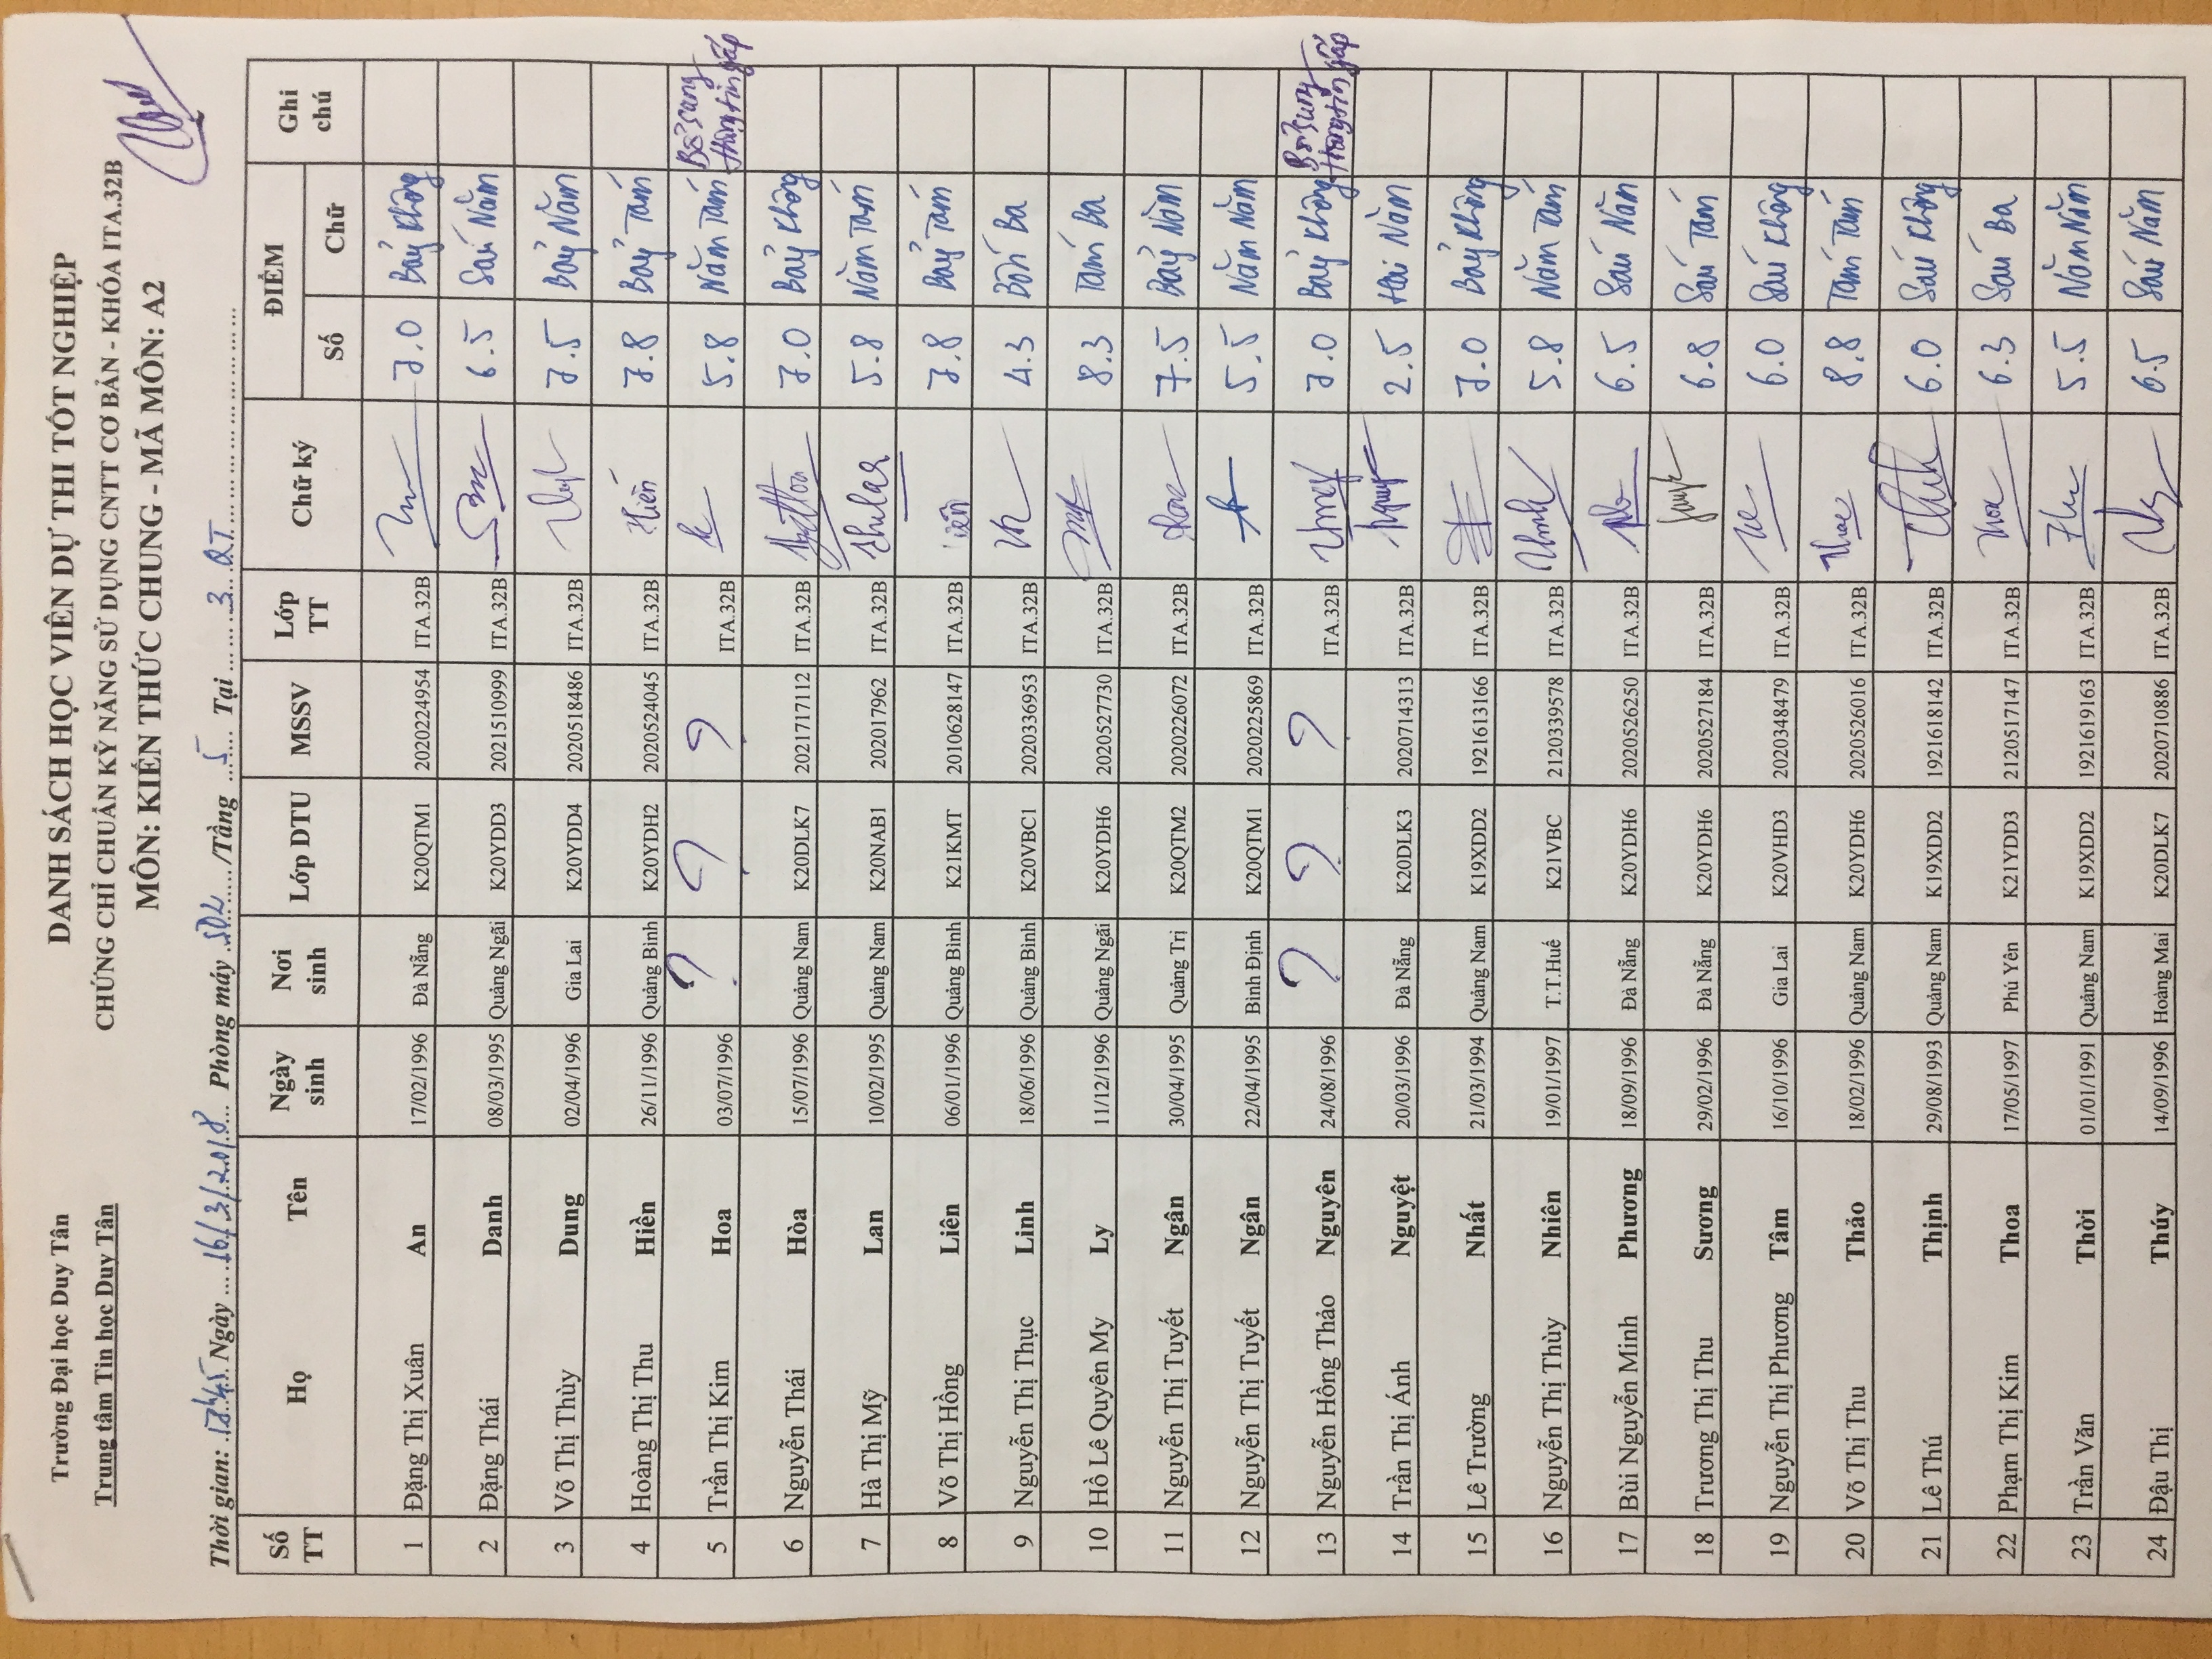 Trường Đại học Duy Tân
Trung tâm Tin học Duy Tân
DANH SÁCH HỌC VIÊN DỰ THI TỐT NGHIỆP
CHỨNG CHỈ CHUẨN KỸ NĂNG SỬ DỤNG CNTT CƠ BẢN - KHÓA ITA.32B
MÔN: KIẾN THỨC CHUNG - MÃ MÔN: A2
Thời gian: 17h45 Ngày 16/3/2018 Phòng máy 502 /Tầng 5 Tại 3 QT
Số TT Họ Tên Ngày sinh Nơi sinh Lớp DTU MSSV Lớp TT Chữ ký ĐIỂM Ghi chú
Số Chữ
1 Đặng Thị Xuân An 17/02/1996 Đà Nẵng K20QTM1 2020224954 ITA.32B 7.0 Bảy Không
2 Đặng Thái Danh 08/03/1995 Quảng Ngãi K20YDD3 2021510999 ITA.32B 6.5 Sáu Năm
3 Võ Thị Thùy Dung 02/04/1996 Gia Lai K20YDD4 2020518486 ITA.32B 7.5 Bảy Năm
4 Hoàng Thị Thu Hiền 26/11/1996 Quảng Bình K20YDH2 2020524045 ITA.32B Hiền 7.8 Bảy Tám
5 Trần Thị Kim Hoa 03/07/1996 ? ? ? ITA.32B 5.8 Năm Tám Bổ sung thông tin gấp
6 Nguyễn Thái Hòa 15/07/1996 Quảng Nam K20DLK7 2021717112 ITA.32B 7.0 Bảy Không
7 Hà Thị Mỹ Lan 10/02/1995 Quảng Nam K20NAB1 202017962 ITA.32B 5.8 Năm Tám
8 Võ Thị Hồng Liên 06/01/1996 Quảng Bình K21KMT 2010628147 ITA.32B Liên 7.8 Bảy Tám
9 Nguyễn Thị Thục Linh 18/06/1996 Quảng Bình K20VBC1 2020336953 ITA.32B 4.3 Bốn Ba
10 Hồ Lê Quyên My Ly 11/12/1996 Quảng Ngãi K20YDH6 2020527730 ITA.32B 8.3 Tám Ba
11 Nguyễn Thị Tuyết Ngân 30/04/1995 Quảng Trị K20QTM2 2020226072 ITA.32B 7.5 Bảy Năm
12 Nguyễn Thị Tuyết Ngân 22/04/1995 Bình Định K20QTM1 2020225869 ITA.32B 5.5 Năm Năm
13 Nguyễn Hồng Thảo Nguyên 24/08/1996 ? ? ? ITA.32B 7.0 Bảy Không Bổ sung thông tin gấp
14 Trần Thị Ánh Nguyệt 20/03/1996 Đà Nẵng K20DLK3 2020714313 ITA.32B 2.5 Hai Năm
15 Lê Trường Nhất 21/03/1994 Quảng Nam K19XDD2 1921613166 ITA.32B 7.0 Bảy Không
16 Nguyễn Thị Thùy Nhiên 19/01/1997 T.T.Huế K21VBC 2120339578 ITA.32B 5.8 Năm Tám
17 Bùi Nguyễn Minh Phương 18/09/1996 Đà Nẵng K20YDH6 2020526250 ITA.32B 6.5 Sáu Năm
18 Trương Thị Thu Sương 29/02/1996 Đà Nẵng K20YDH6 2020527184 ITA.32B 6.8 Sáu Tám
19 Nguyễn Thị Phương Tâm 16/10/1996 Gia Lai K20VHD3 2020348479 ITA.32B 6.0 Sáu Không
20 Võ Thị Thu Thảo 18/02/1996 Quảng Nam K20YDH6 2020526016 ITA.32B 8.8 Tám Tám
21 Lê Thú Thịnh 29/08/1993 Quảng Nam K19XDD2 1921618142 ITA.32B 6.0 Sáu Không
22 Phạm Thị Kim Thoa 17/05/1997 Phú Yên K21YDD3 2120517147 ITA.32B Thoa 6.3 Sáu Ba
23 Trần Văn Thời 01/01/1991 Quảng Nam K19XDD2 1921619163 ITA.32B 5.5 Năm Năm
24 Đậu Thị Thúy 14/09/1996 Hoàng Mai K20DLK7 2020710886 ITA.32B 6.5 Sáu Năm